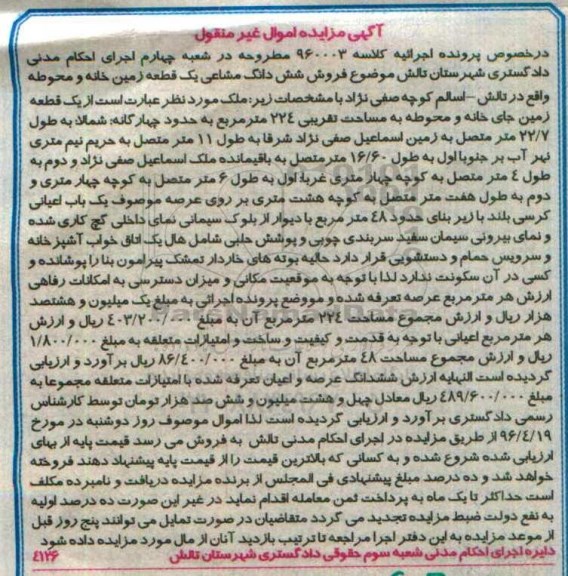 آگهی مزایده اموال غیر منقول
درخصوص پرونده اجرائیه کلاسه ۹۶۰۰۰۳ مطروحه در شعبه چهارم اجرای احکام مدنی
دادگستری شهرستان تالش موضوع فروش شش دانگ مشاعی یک قطعه زمین خانه و محوطه
واقع در تالش -اسالم کوچه صفی نژاد با مشخصات زیر: ملک مورد نظر عبارت است از یک قطعه
زمین جای خانه و محوطه به مساحت تقریبی ۲۲۴ مترمربع به حدود چهار گانه: شمالا به طول
۲۲/۷ متر متصل به زمین اسماعیل صفی نژاد شرقا به طول ۱۱ متر متصل به حریم نیم متری
نهر آب بر جنوبا اول به طول ۱۶/۶۰ مترمتصل به باقیمانده ملک اسماعیل صفی نژاد و دوم به
طول ٤ متر متصل به کوچه چهار متری غربا: اول به طول ٦ متر متصل به کوچه چهار متری و
دوم به طول هفت متر متصل به کوچه هشت متری بر روی عرصه موصوف یک باب اعیانی
کرسی بلند با زیر بنای حدود ٤٨ متر مربع با دیوار از بلوک سیمانی نمای داخلی گچ کاری شده
و نمای بیرونی سیمان سفید سربندی چوبی و پوشش حلبی شامل هال یک اتاق خواب آشپزخانه
و سرویس حمام و دستشویی قرار دارد حالیه بوته های خاردار تمشک پیرامون بنا را پوشانده و
کسی در آن سکونت ندارد لذا با توجه به موقعیت مکانی و میزان دسترسی به امکانات رفاهی
ارزش هر متر مربع عرصه تعرفه شده و مووضع پرونده اجرائی به مبلغ یک میلیون و هشتصد
هزار ریال و ارزش مجموع مساحت ۲۲٤ متر مربع آن به مبلغ ٤۰۳/۲۰۰/۰۰۰ ریال و ارزش
هر مترمربع اعیانی با توجه به قدمت و کیفیت و ساخت و امتیازات متعلقه به مبلغ ۱/۸۰۰/۰۰۰
ریال و ارزش مجموع مساحت ٤٨ مترمربع آن به مبلغ ۸۶/٤۰۰/۰۰۰ ریال بر آورد و ارزیابی
گردیده است النهایه ارزش ششدانگ عرصه و اعیان تعرفه شده با امتیازات متعلقه مجموعا به
مبلغ ٤۸۹/۶۰۰/۰۰۰ ریال معادل چهل و هشت میلیون و شش صد هزار تومان توسط کارشناس
رسمی دادگستری بر آورد و ارزیابی گردیده است لذا اموال موصوف روز دوشنبه در مورخ
۹۶/٤/۱۹ از طریق مزایده در اجرای احکام مدنی تالش به فروش می رسد قیمت پایه از بهای
ارزیابی شده شروع شده و به کسانی که بالاترین قیمت را از قیمت پایه پیشنهاد دهند فروخته
خواهد شد و ده درصد مبلغ پیشنهادی فی المجلس از برنده مزایده دریافت و نامبرده مکلف
است حداکثر تا یک ماه به پرداخت ثمن معامله اقدام نماید در غیر این صورت ده درصد اولیه
به نفع دولت ضبط مزایده تجدید می گردد متقاضیان در صورت تمایل می توانند پنج روز قبل
از موعد مزایده به این دفتر اجرا مراجعه تا ترتیب بازدید آنان از مال مورد مزایده داده شود
دایره اجرای احکام مدنی شعبه سوم حقوقی دادگستری شهرستان تالش ٤١٢۶